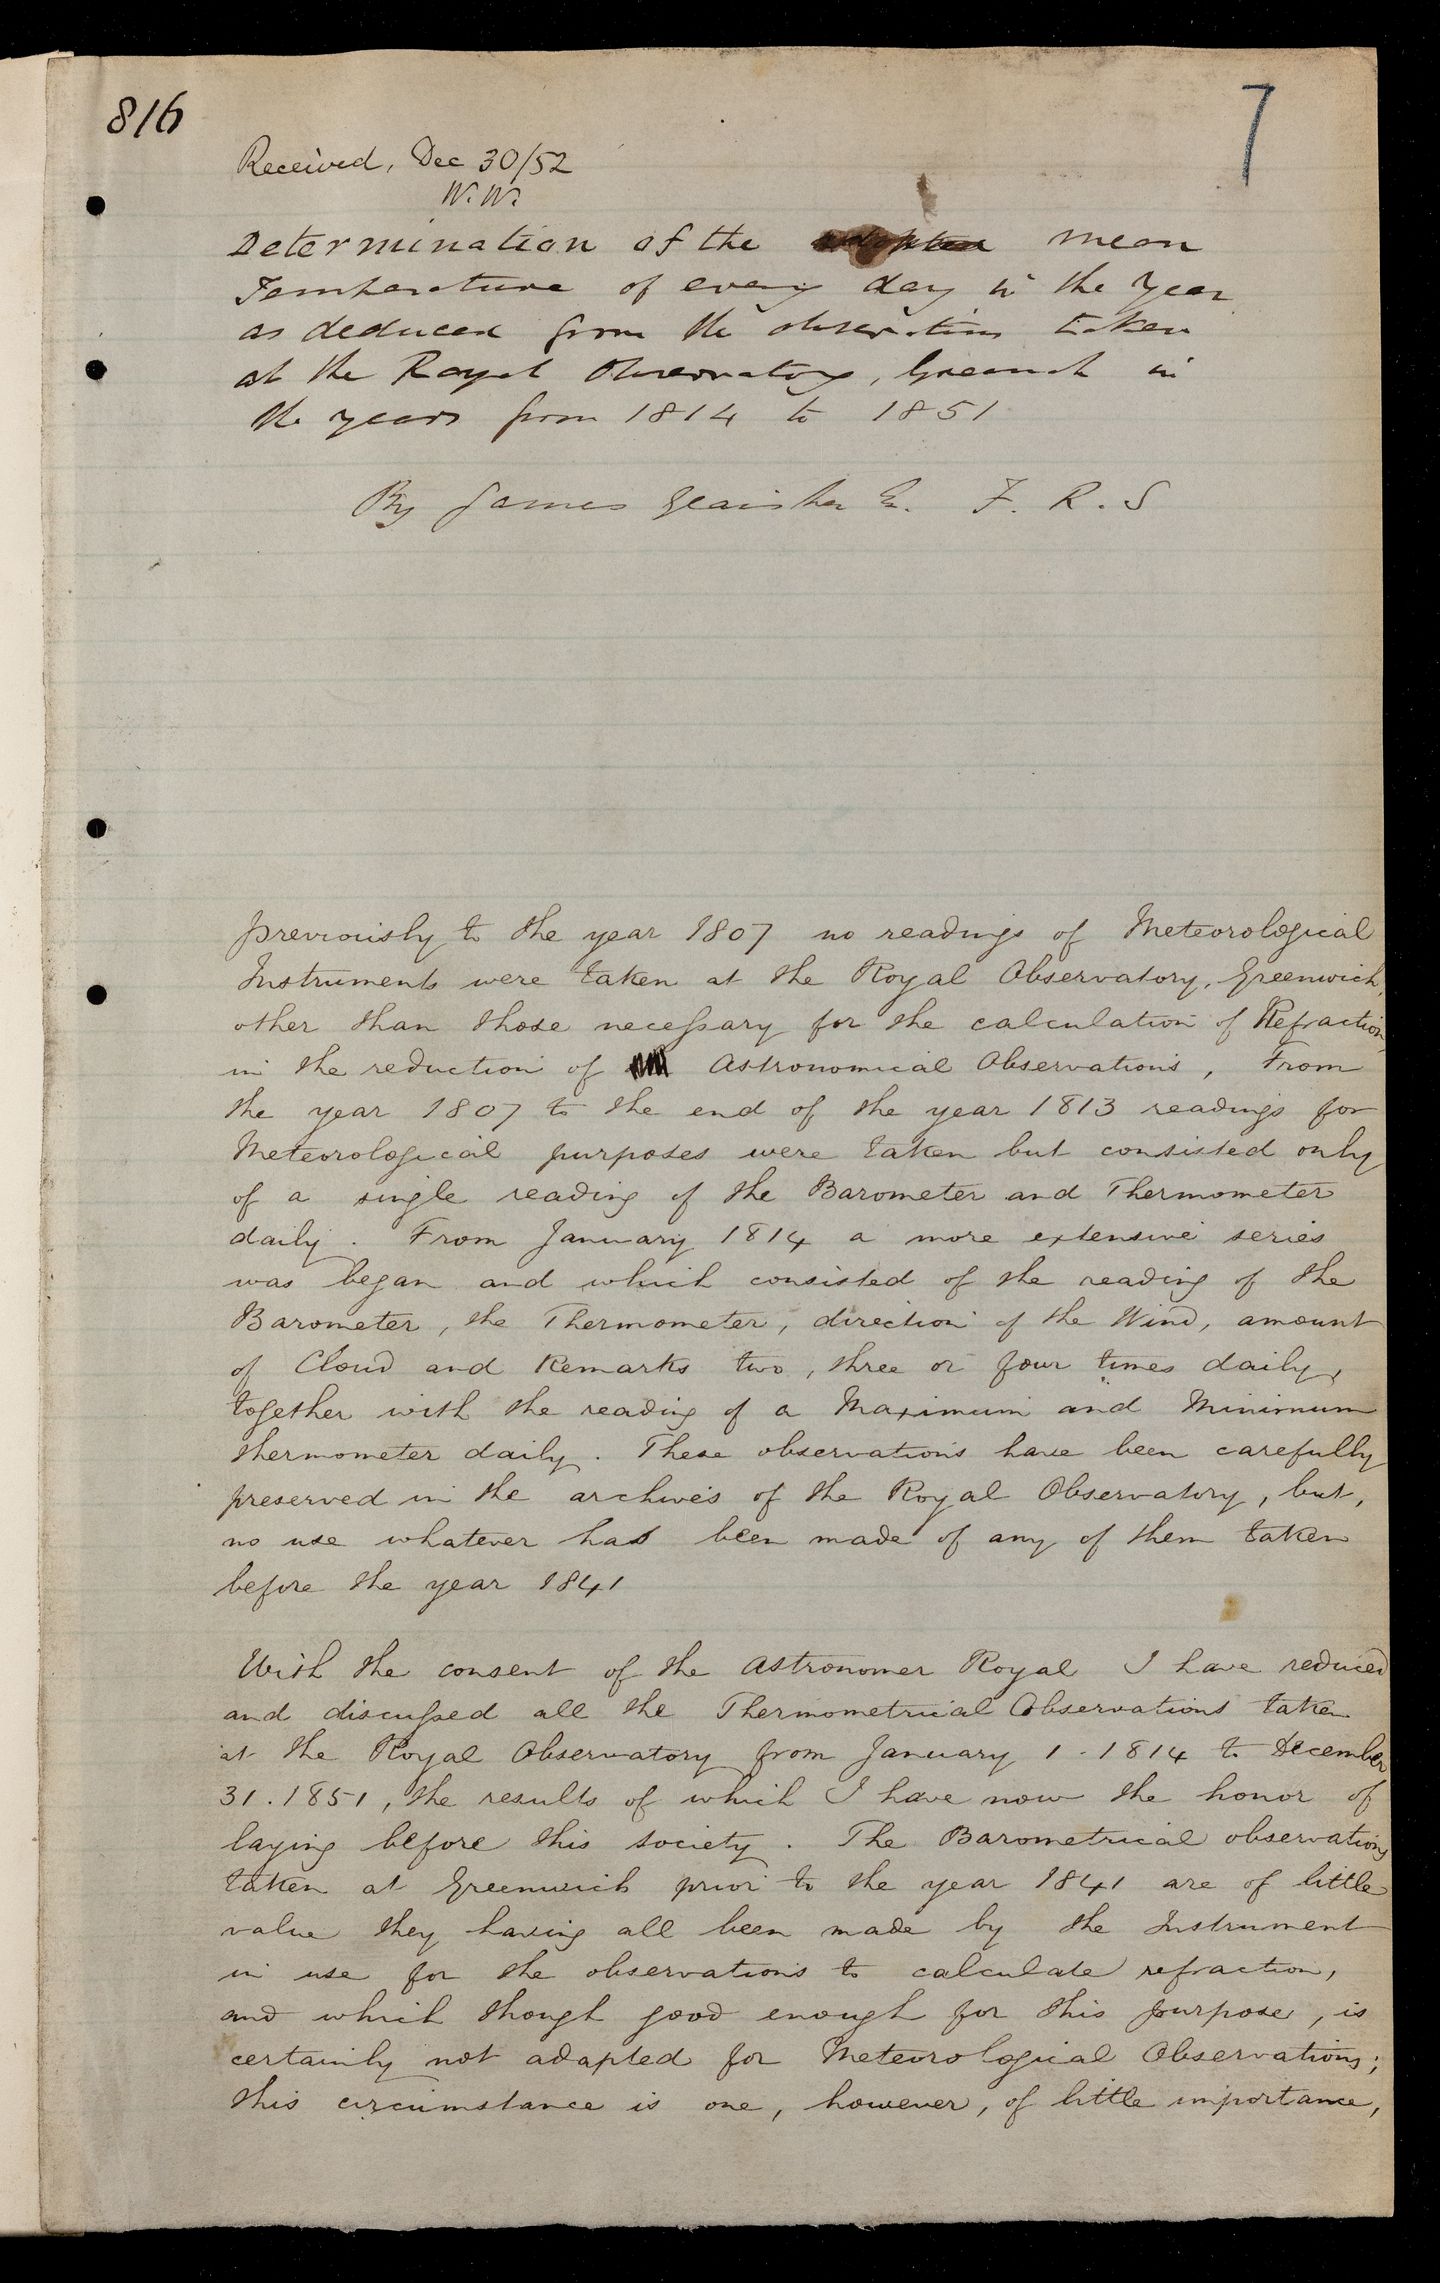 816
7
Received, Dec 30/52
W. W.
Determination of the mean
Temperature of every day in the Year
as deduced from the observations taken
at the Royal Observatory, Greenwich in
the years from 1814 to 1851
By James Glaisher Esq. F. R. S
previously to the year 1807 no readings of Meteorological
Instruments were taken at the Royal Observatory, Greenwich,
other than those necessary for the calculation of Refraction
in the reduction of Astronomical Observations, From
the year 1807 to the end of the year 1813 readings for
Meteorological purposes were taken but consisted only
of a single reading of the Barometer and Thermometer
daily. From January 1814 a more extensive series
was began and which consisted of the reading of the
Barometer, the Thermometer, direction of the Wind, amount
of Cloud and Remarks two, three or four times daily,
together with the reading of a Maximum and Minimum
thermometer daily. These observations have been carefully
preserved in the archives of the Royal Observatory, but,
no use whatever has been made of any of them taken
before the year 1841
With the consent of the Astronomer Royal I have reduced
and discussed all the Thermometrical Observations taken
at the Royal Observatory from January 1. 1814 to December
31. 1851, the results of which I have now the honor of
laying before this society. The Barometrical observations
taken at Greenwich prior to the year 1841 are of little
value they having all been made by the Instrument
in use for the observations to calculate refraction,
and which though good enough for this purpose, is
certainly not adapted for Meteorological Observations;
this circumstance is one, however, of little importance,